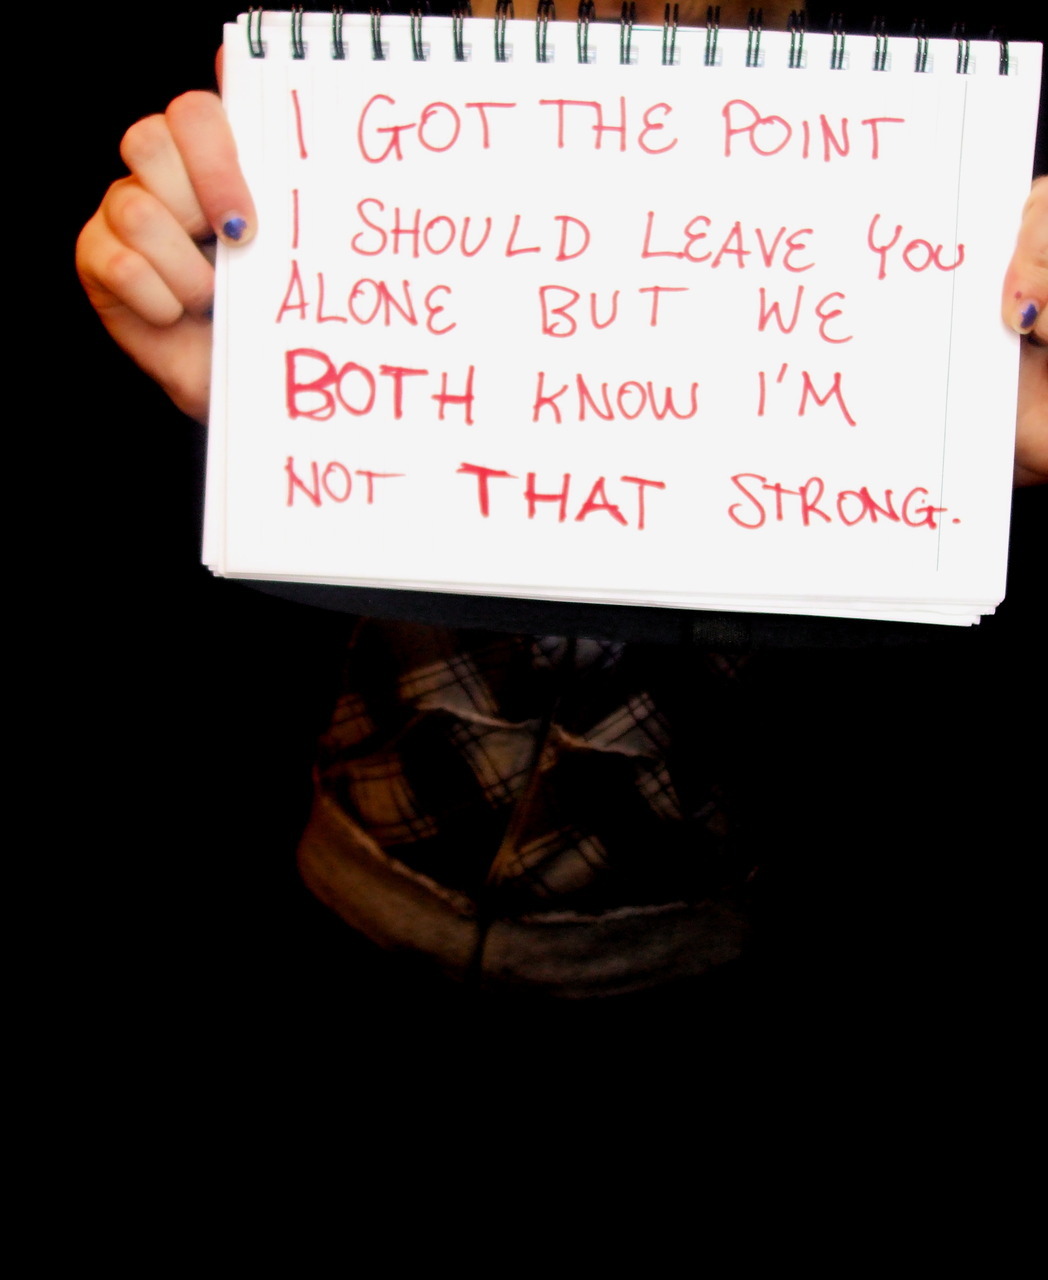 I GOT THE POINT
I SHOULD LEAVE YOU
ALONE BUT WE
BOTH KNOW I'M
NOT THAT STRONG.